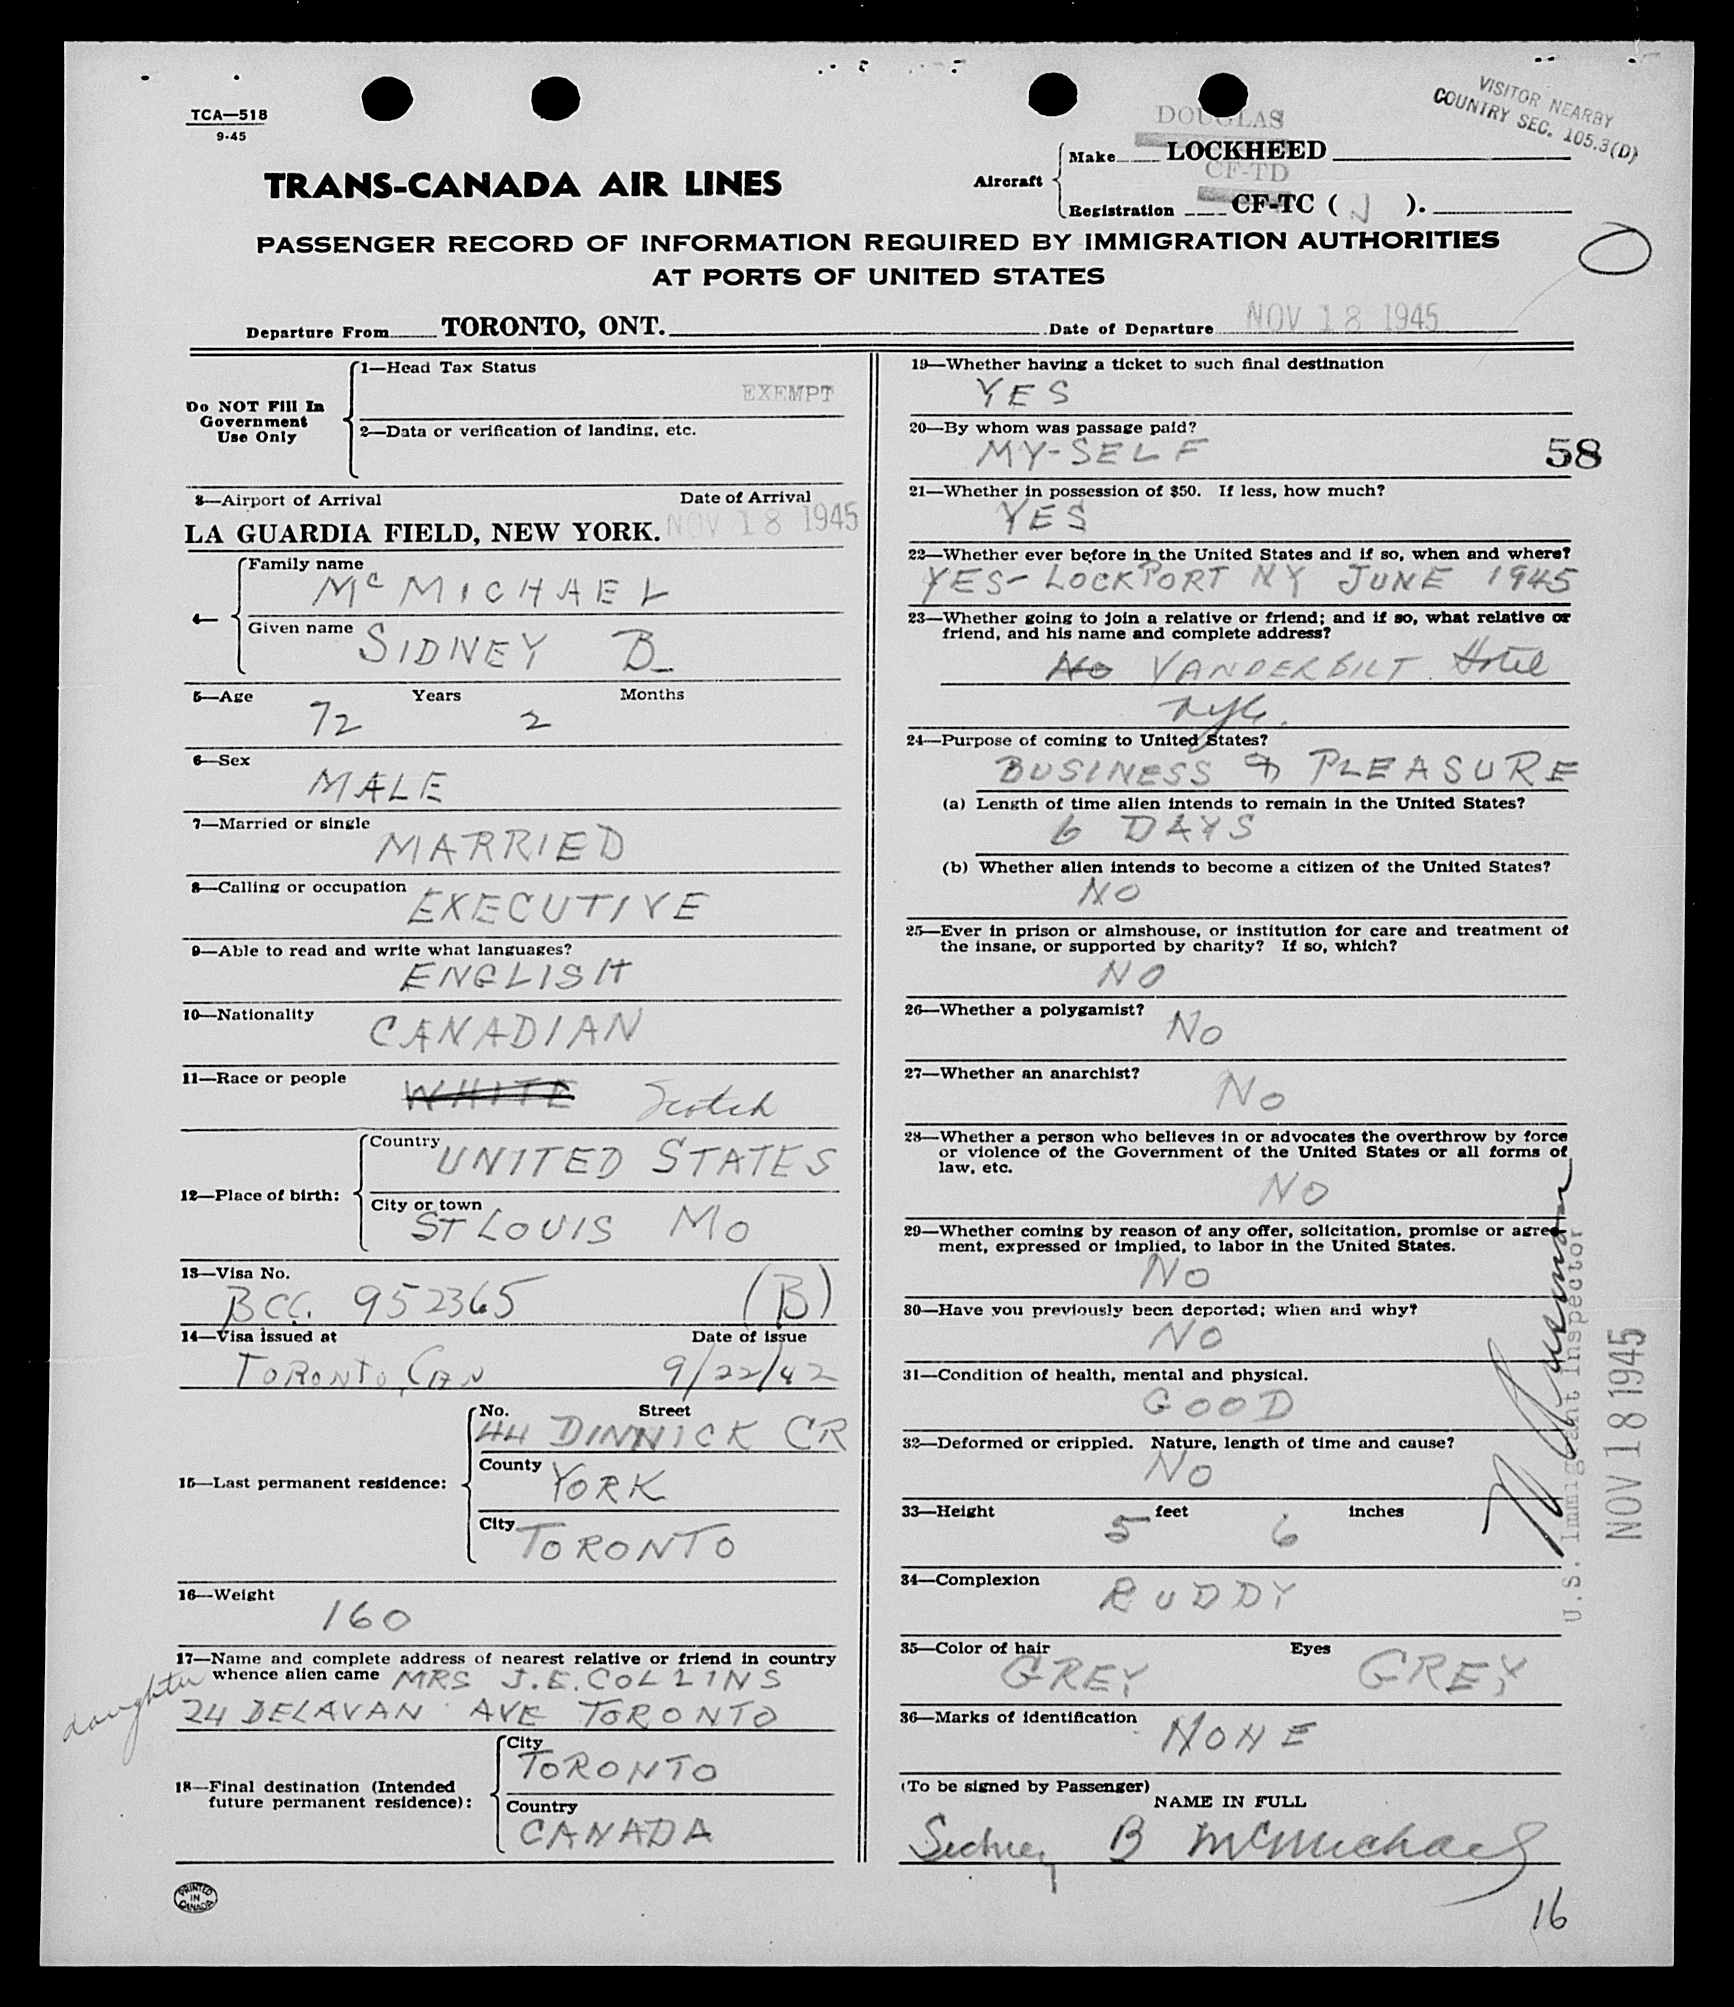 VISITOR NEARBY
COUNTRY SEC. 105.3(D)
TCA—518
9-45
TRANS-CANADA AIR LINES
DOUGLAS
Aircraft
Make LOCKHEED
CF-TD
Registration CF-TC ( J ).
PASSENGER RECORD OF INFORMATION REQUIRED BY IMMIGRATION AUTHORITIES
AT PORTS OF UNITED STATES
Departure From TORONTO, ONT. Date of Departure NOV 18 1945
Do NOT Fill In
Government
Use Only
1—Head Tax Status
EXEMPT
2—Data or verification of landing, etc.
3—Airport of Arrival Date of Arrival
LA GUARDIA FIELD, NEW YORK. NOV 18 1945
4—
Family name
McMICHAEL
Given name SIDNEY B
5—Age Years Months
72 2
6—Sex
MALE
7—Married or single
MARRIED
8—Calling or occupation
EXECUTIVE
9—Able to read and write what languages?
ENGLISH
10—Nationality
CANADIAN
11—Race or people
WHITE Scotch
12—Place of birth:
Country
UNITED STATES
City or town
ST LOUIS MO
13—Visa No.
BCC. 952365 (B)
14—Visa issued at Date of issue
TORONTO, CAN 9/22/42
15—Last permanent residence:
No. Street
44 DINNICK CR
County
YORK
City
TORONTO
16—Weight
160
17—Name and complete address of nearest relative or friend in country
whence alien came MRS J.E. COLLINS
daughter
24 DELAVAN AVE TORONTO
18—Final destination (Intended
future permanent residence):
City
TORONTO
Country
CANADA
PRINTED
IN
CANADA
19—Whether having a ticket to such final destination
YES
20—By whom was passage paid?
MY-SELF
58
21—Whether in possession of $50. If less, how much?
YES
22—Whether ever before in the United States and if so, when and where?
YES- LOCKPORT NY JUNE 1945
23—Whether going to join a relative or friend; and if so, what relative or
friend, and his name and complete address?
NO VANDERBILT Hotel
NYC.
24—Purpose of coming to United States?
BUSINESS & PLEASURE
(a) Length of time alien intends to remain in the United States?
6 DAYS
(b) Whether alien intends to become a citizen of the United States?
NO
25—Ever in prison or almshouse, or institution for care and treatment of
the insane, or supported by charity? If so, which?
NO
26—Whether a polygamist?
NO
27—Whether an anarchist?
NO
28—Whether a person who believes in or advocates the overthrow by force
or violence of the Government of the United States or all forms of
law, etc.
NO
29—Whether coming by reason of any offer, solicitation, promise or agree-
ment, expressed or implied, to labor in the United States.
NO
30—Have you previously been deported; when and why?
NO
31—Condition of health, mental and physical.
GOOD
32—Deformed or crippled. Nature, length of time and cause?
NO
33—Height feet inches
5 6
34—Complexion
RUDDY
35—Color of hair Eyes
GREY GREY
36—Marks of identification
NONE
U.S. Immigrant Inspector
NOV 18 1945
(To be signed by Passenger)
NAME IN FULL
Sidney B McMichael
16